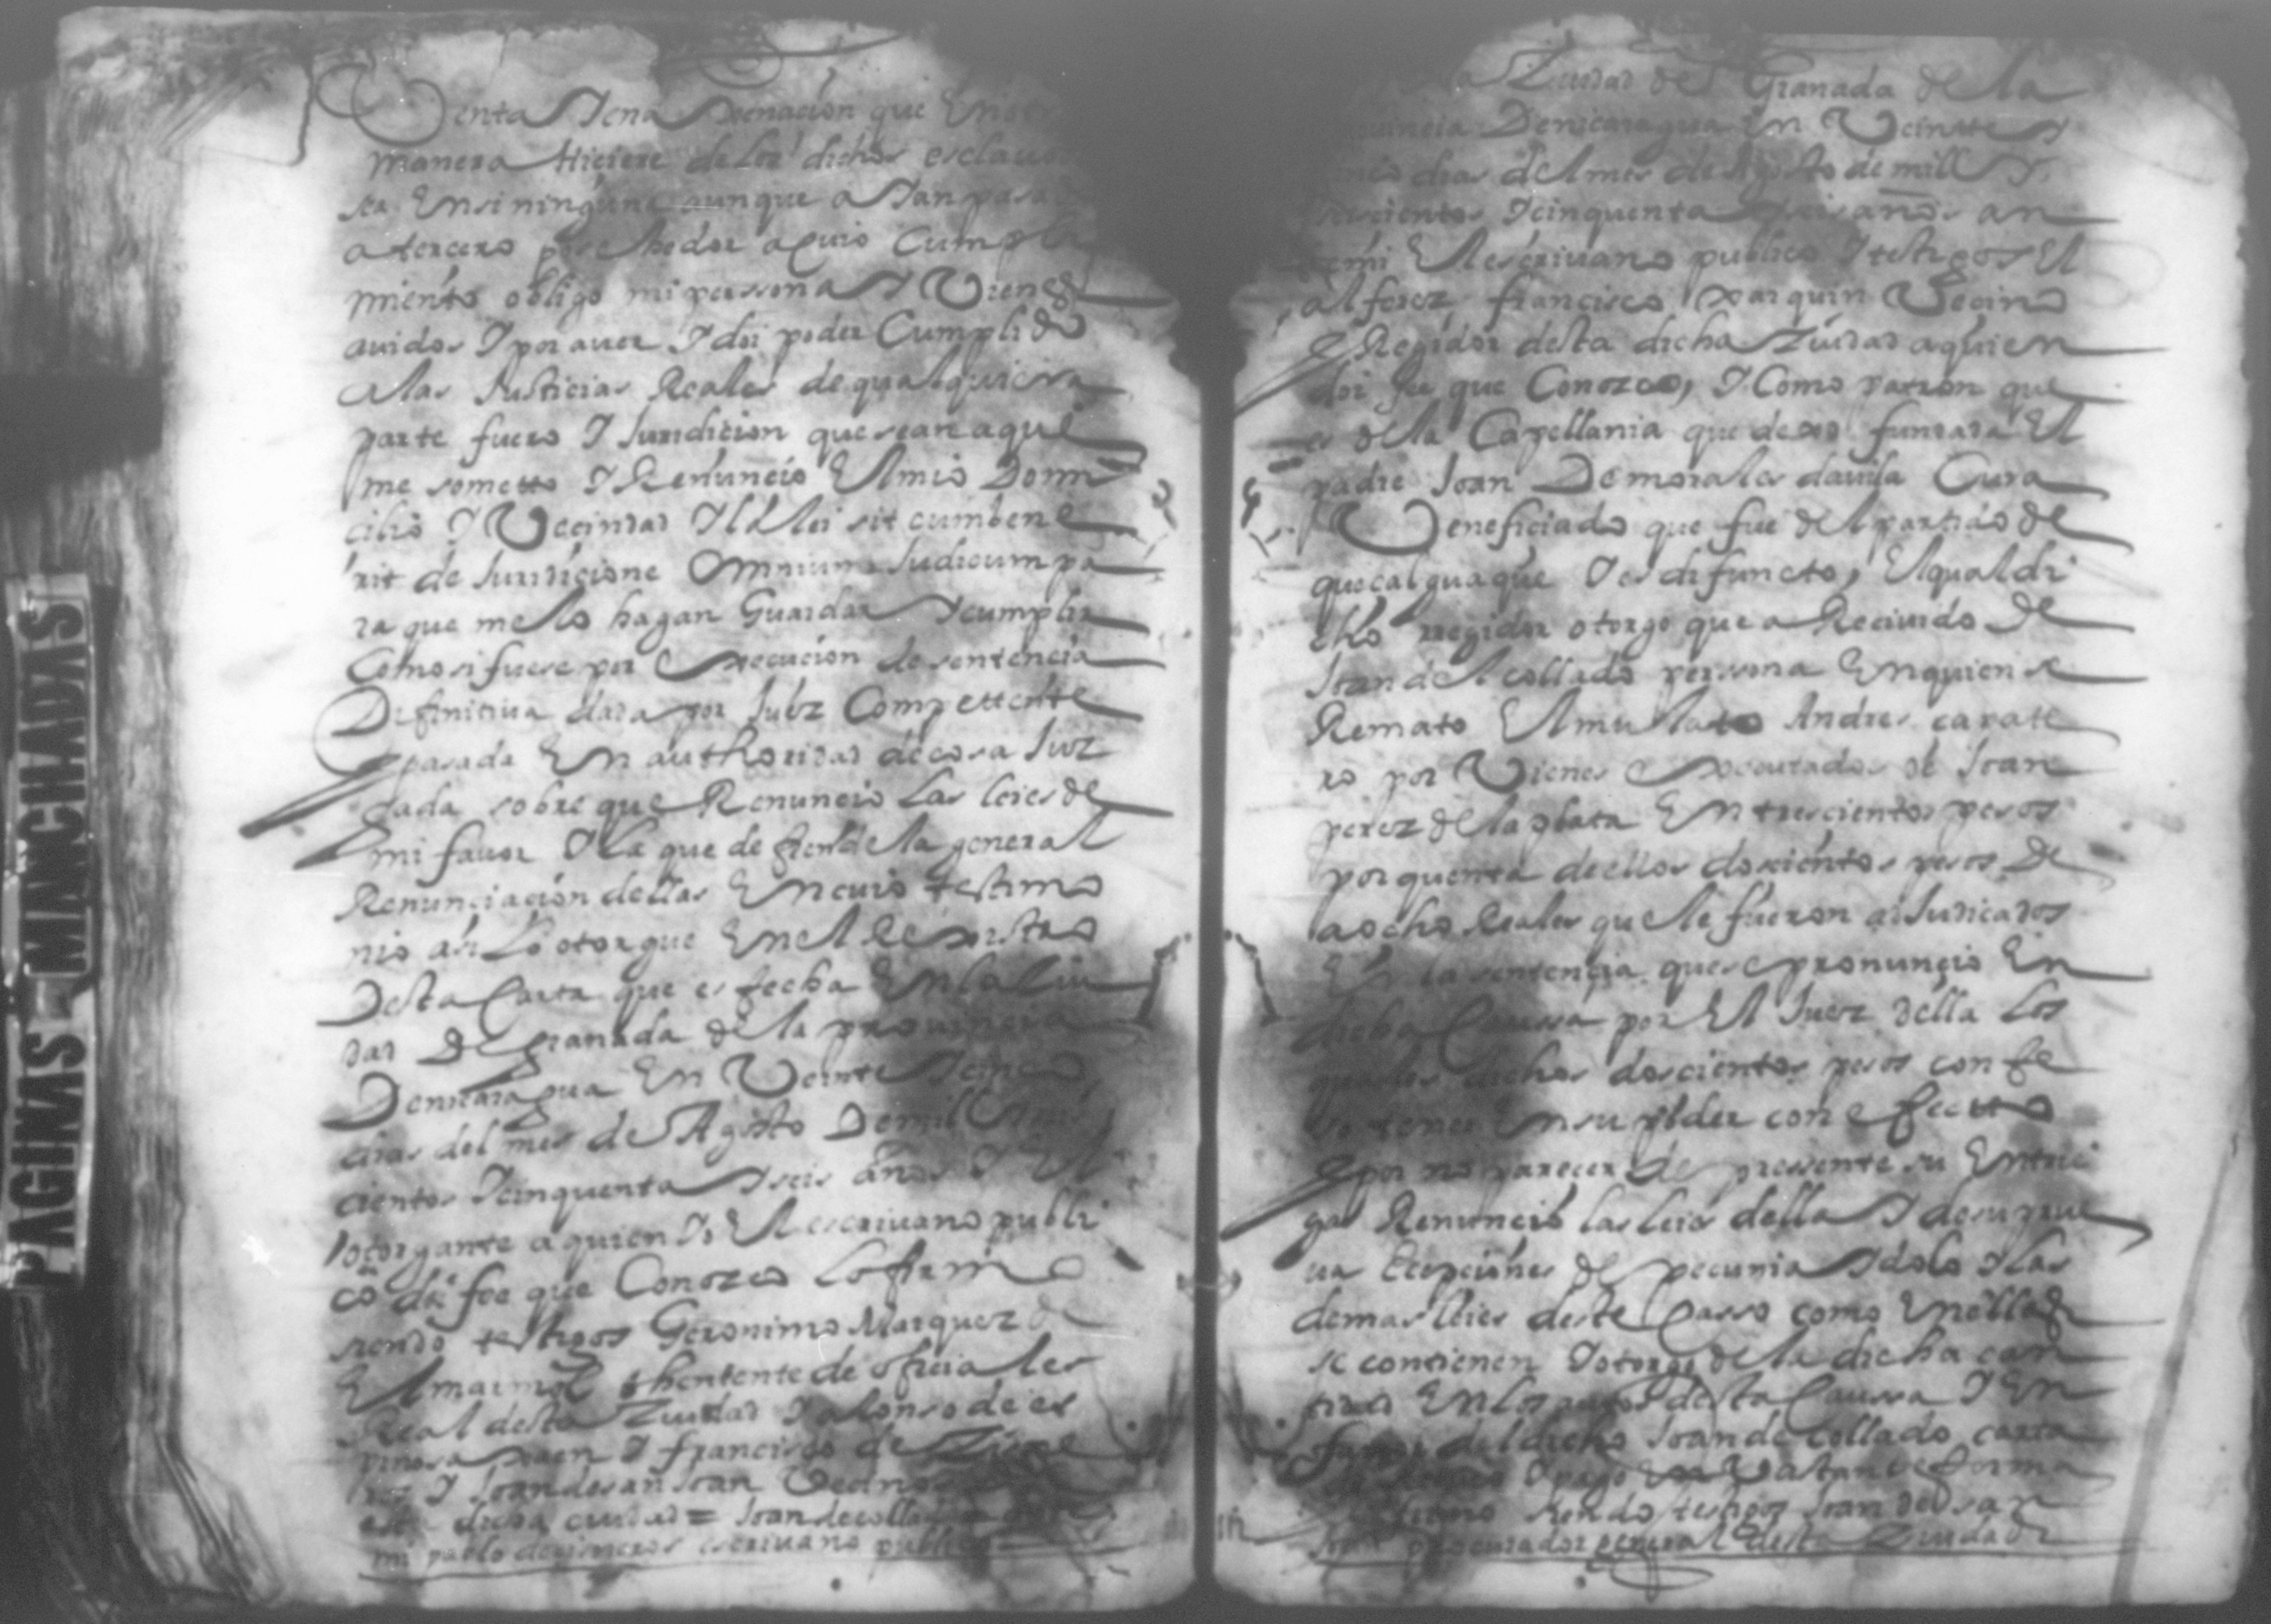 Venta Y enagenacion que En otra
manera Hiciere de los dichos esclauos
sea En si ninguna aunque aYan pasado
a tercero posehedor a cuio Cumpli
miento obligo mi persona Y Vienes
auidos Y por auer Y doi poder Cumplido
a las Justicias Reales de qualquiera
parte fuero Y Juridicion que sean a que
me sometto Y Renuncio El mio Domi
cilio Y Vecindad Y la lei sit cumbene
rit de Juridicione Omnium Judicum pa
ra que me lo hagan Guardar Y cumplir
Como si fuese por Execucion de sentencia
Definitiua dada por Juez Compettente
E pasada En authoridad de cosa Juz
gada sobre que Renuncio Las leies de
mi fauor Y La que defiende la general
Renunciacion dellas En cuio testimo
nio asi Lo otorgue En el Rexistro
Desta Carta que es fecha En la Ziu
dad De Granada de la prouincia
De nicaragua En Veinte Y cinco
dias del mes de Agosto De mill Y seis
cientos Y cinquenta Y seis años Y El
otorgante a quien Yo El escriuano publi
co doi fee que Conozco Lo firmo
siendo testigos Geronimo Marquez de
El marmol thenfente de oficiales
Real desta Ziudad Y alonso de es
pinosa Y francisco de
Y Joan de san Joan Vecinos
esta dicha ciudad = Joan de collado = ante
mi pablo de gisneros escriuano publico
la Ziudad de Granada de la
prouincia De nicaragua En Veintte Y
cinco dias del mes de Agosto de mill Y
seiscientos Y cinquenta Y seis años an
te mi El escriuano publico Y testigos El
alferez francisco xarquin Vecino
E Regidor desta dicha Ziudad a quien
doi fee que Conozco, Y Como patron que
es de la Capellania que dexo fundada El
padre Joan De morales dauila Cura
Veneficiado que fue del partido de
quecalguaque Y es difuncto, El qual di
cho rregidor otorgo que a Receuido de
Joan del collado persona En quien se
Remato El mulato Andres capate
ro por Vienes Executados de Joan
perez de la plata En trescientos pesos
por quenta de ellos doscientos pesos De
a ocho Reales que le fueron adJudicados
En la sentencia que se pronuncio En
dicha Caussa por El Juez della Los
quales dichos doscientos pesos confe
so tener En su poder con efectto
E por no parecer de pressente su Entre
ga Renuncio las leies della Y de su prue
ua Ecepciones de pecunia Y dolo Y las
demas leies deste Casso como En ellas
se contienen Y otorgo de la dicha can
tidad En los autos desta Caussa Y En
fauor del dicho Joan de collado carta
Y pago En Vastante forma
firmo siendo testigos Joan de san
Joan procurador general desta Ziudad
PAGINAS MANCHADAS